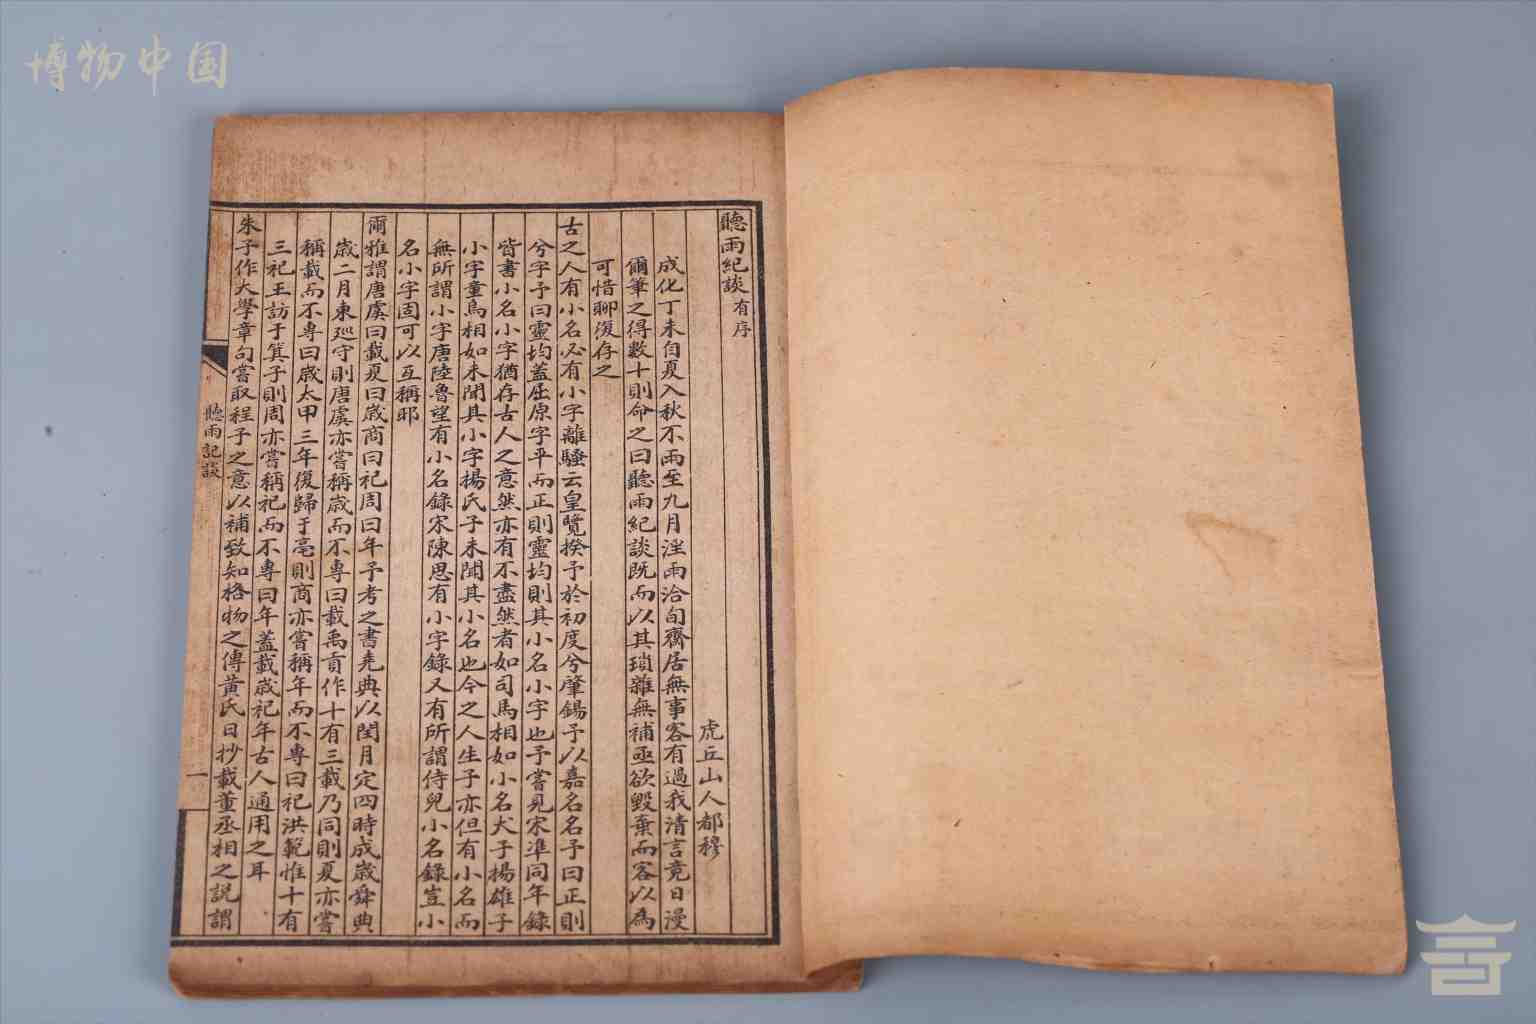 博物中国
聽雨紀談有序
虎丘山人都穆
成化丁未自夏入秋不雨至九月淫雨洽旬齋居無事客有過我清言竟日漫
爾筆之得數十則命之曰聽雨紀談既而以其瑣雜無補亟欲毀棄而客以為
可惜聊復存之
古之人有小名必有小字離騷云皇覽揆予於初度兮肇錫予以嘉名名予曰正則
兮字予曰靈均蓋屈原字平而正則靈均則其小名小字也予嘗見宋準同年錄
皆書小名小字猶存古人之意然亦有不盡然者如司馬相如小名犬子揚雄子
小字童烏相如未聞其小字揚氏子未聞其小名也今之人生子亦但有小名而
無所謂小字唐陸魯望有小名錄宋陳思有小字錄又有所謂侍兒小名錄豈小
名小字固可以互稱耶
爾雅謂唐虞曰載夏曰歲商曰祀周曰年予考之書堯典以閏月定四時成歲舜典
歲二月東巡守則唐虞亦嘗稱歲而不專曰載禹貢作十有三載乃同則夏亦嘗
稱載而不專曰歲太甲三年復歸于亳則商亦嘗稱年而不專曰祀洪範惟十有
三祀王訪于箕子則周亦嘗稱祀而不專曰年蓋載歲祀年古人通用之耳
朱子作大學章句嘗取程子之意以補致知格物之傳黃氏日抄載董丞相之說謂
聽雨記談
一